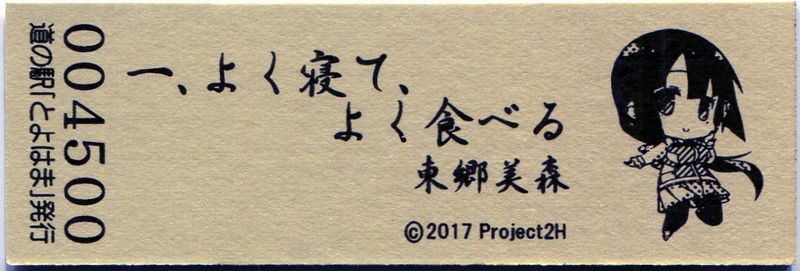 一、よく寝て、
よく食べる
東郷美森
©2017 Project2H
004500
道の駅「とよはま」発行